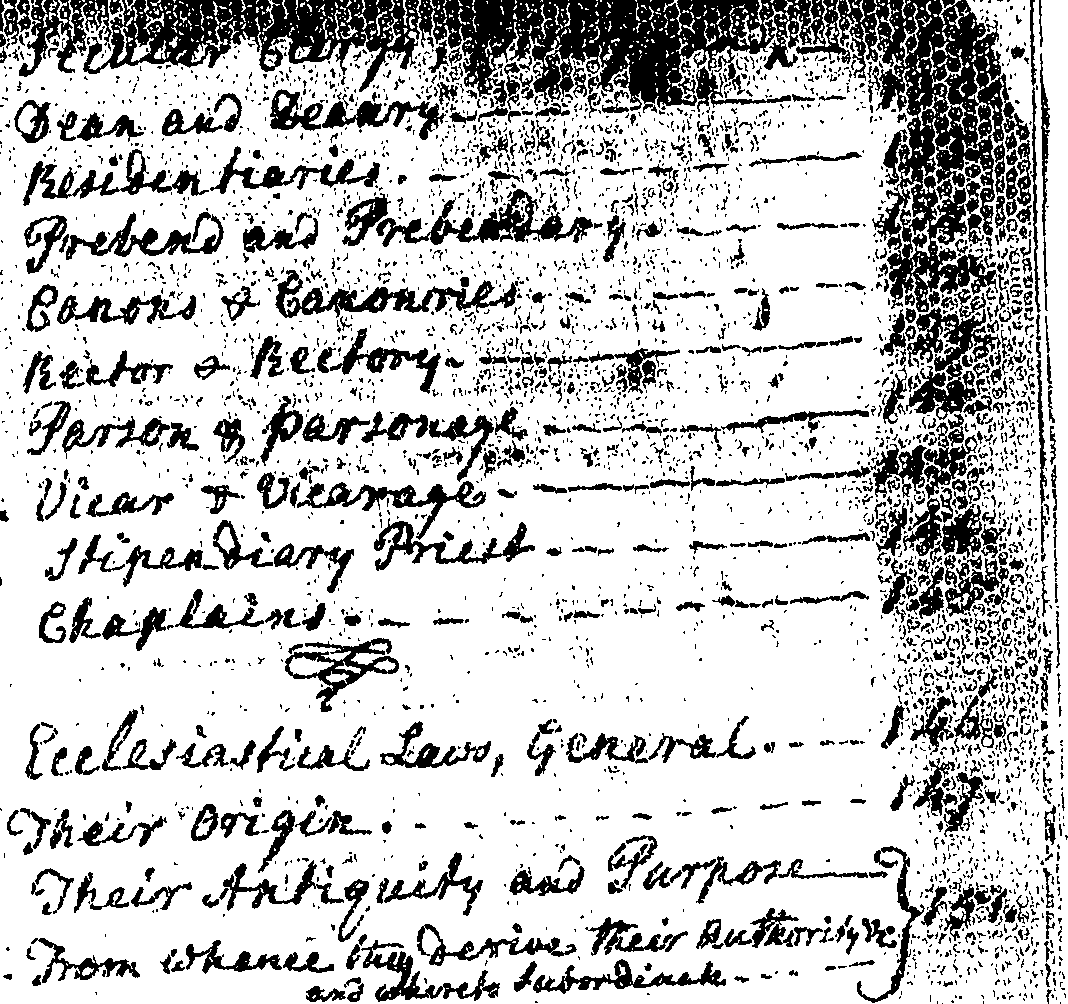 Secular Clergy,
Dean and Deanry
Residentiaries.
Prebend and Prebendary.
Canons & Canonries.
Rector & Rectory. 139.
Parson & Parsonage
Vicar & Vicarage
Stipendiary Priest 144
Chaplains. 145
Ecclesiastical Laws, General. 146.
Their Origin. 147.
Their Antiquity and Purpose
From whence they derive their Authority &c 151.
and whereto Subordinate